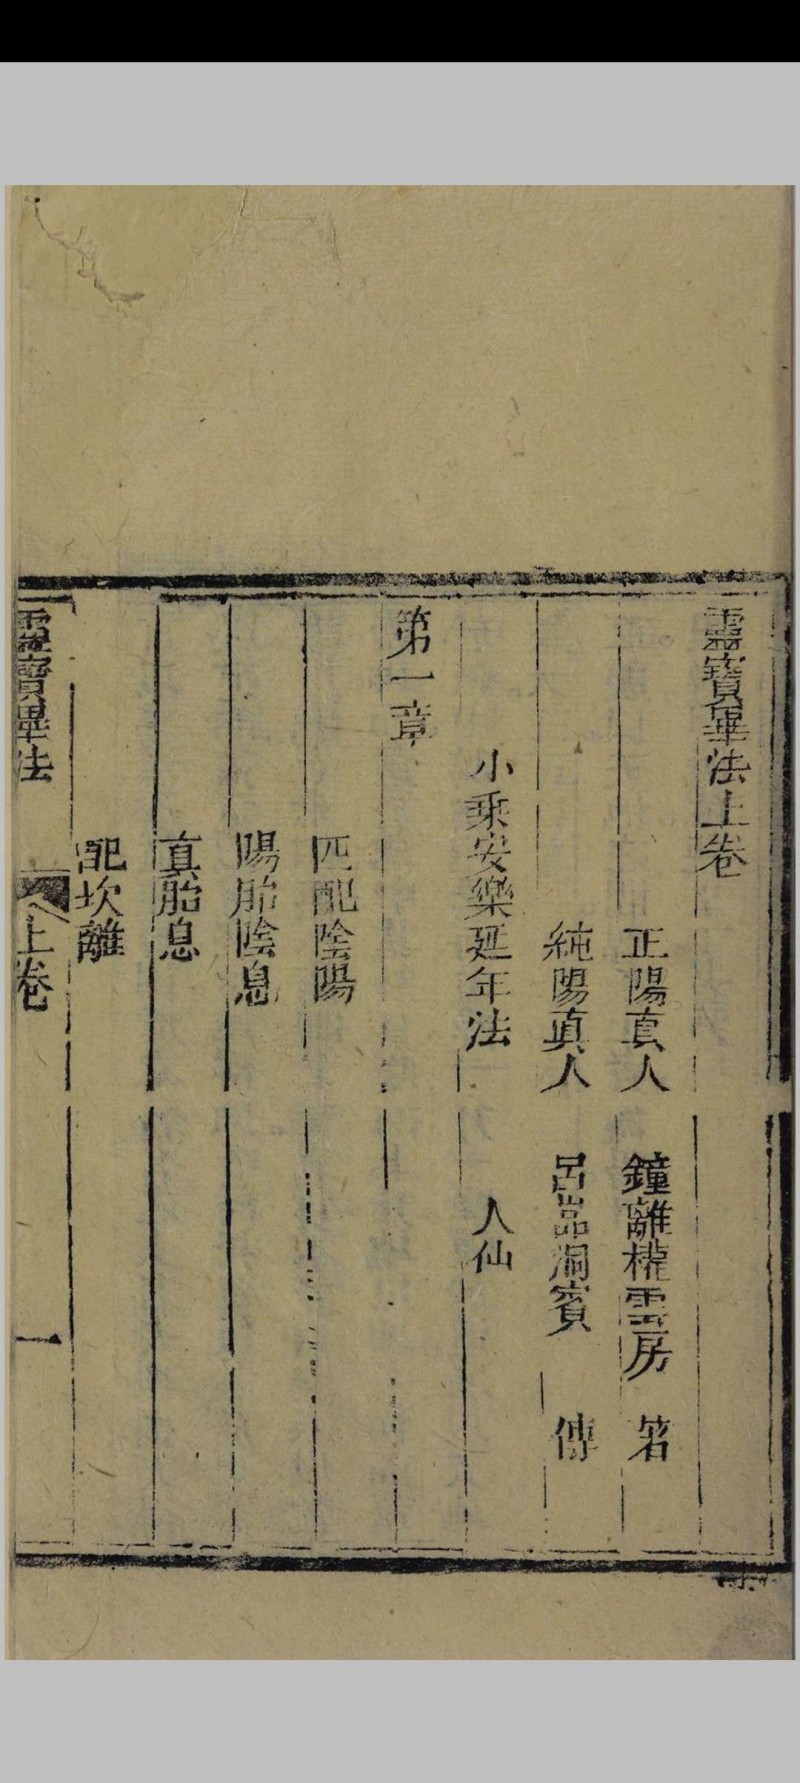 靈寶畢法上卷
正陽真人　鍾離權雲房　著
純陽真人　呂嵓洞賓　傳
小乘安樂延年法　人仙
第一章
匹配陰陽
陽胎陰息
真胎息
配坎離
靈寶畢法　上卷　一